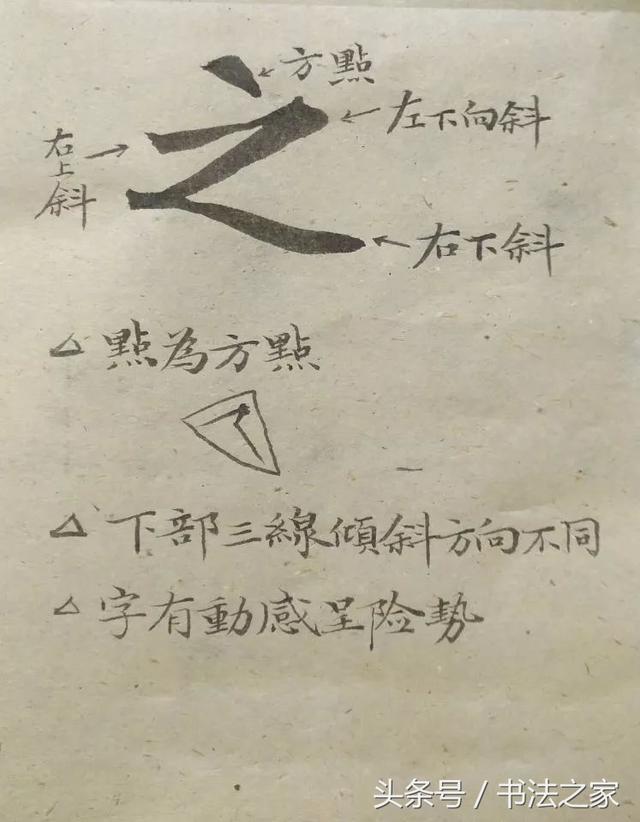 之
方點
左下向斜
右上斜
右下斜
點為方點
下部三線傾斜方向不同
字有動感呈险勢
头条号/书法之家